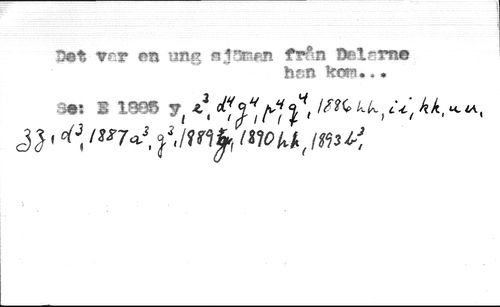 Det var en ung sjöman från Delarne
han kom...
Se: E 1885 y, e³, d⁴, g⁴, p⁴, q⁴, 1886 hh, ii, kk, uu,
zz, d³, 1887 a³, g³, 1889 g, 1890 hh, 1893 b³,